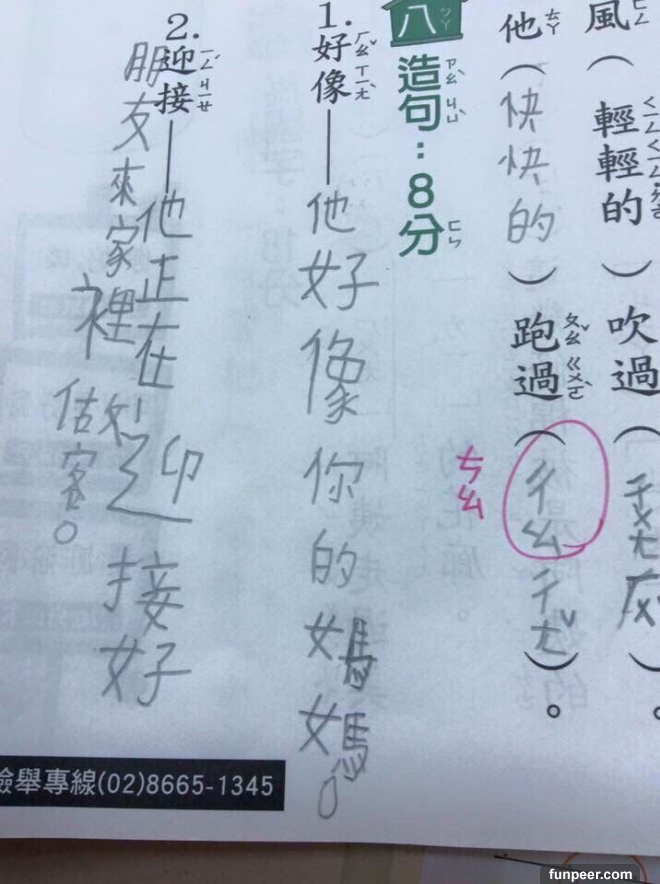 風（輕輕的）吹過（ㄔㄨㄤ）。
他（快快的）跑過（ㄔㄠㄔㄤˇ）。
ㄘㄠ
八 造句：8分
1.好像——他好像你的媽媽。
2.迎接——他正在迎接好
朋友來家裡估客。
檢舉專線(02)8665-1345
funpeer.com